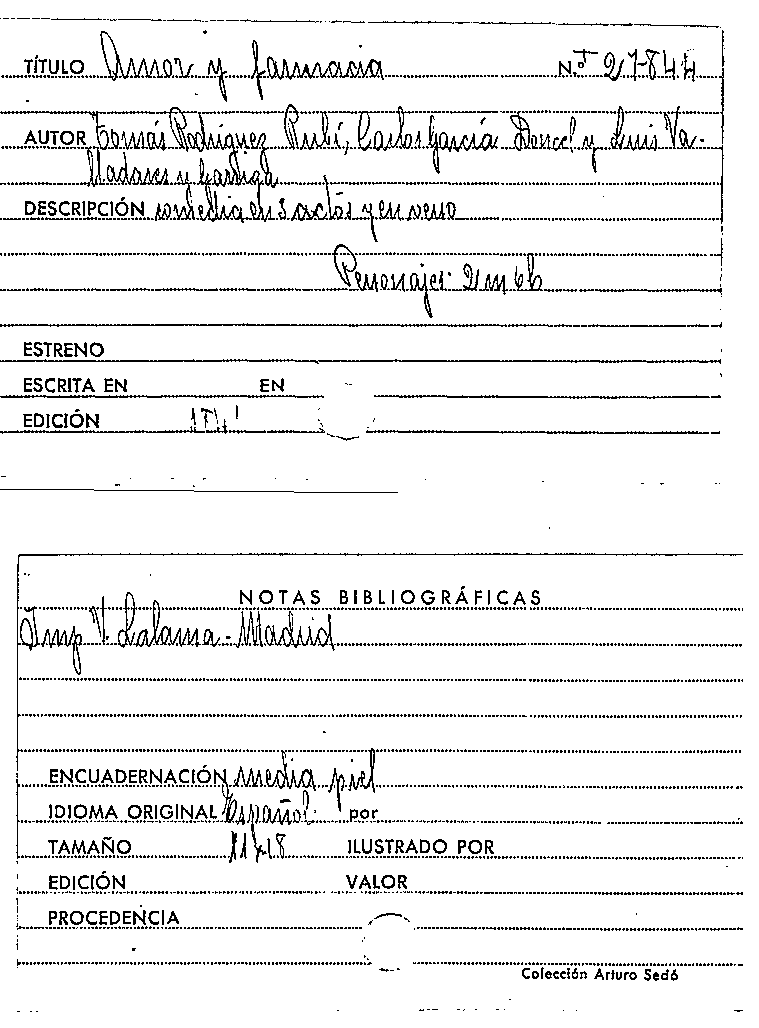 TÍTULO Amor y farmacia N.º 27-844
AUTOR Tomás Rodríguez Rubí, Carlos García Doncel y Luis Va-
lladares y Garriga
DESCRIPCIÓN comedia en 3 actos y en verso
Personajes: 2 m 6 h
ESTRENO
ESCRITA EN EN
EDICIÓN
NOTAS BIBLIOGRÁFICAS
Imp V. Lalama - Madrid
ENCUADERNACIÓN media piel
IDIOMA ORIGINAL Español por
TAMAÑO 11x18 ILUSTRADO POR
EDICIÓN VALOR
PROCEDENCIA
Colección Arturo Sedó